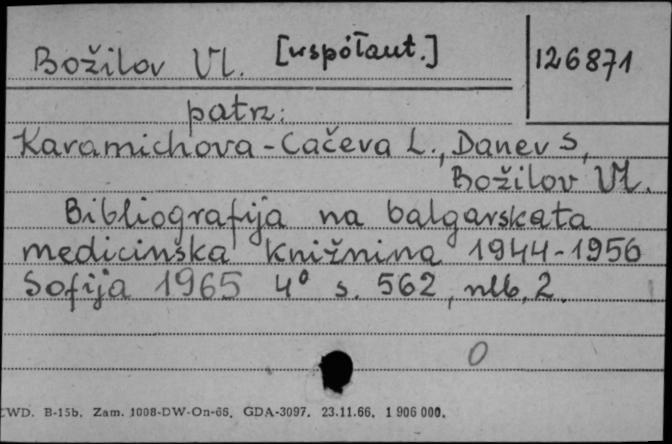 Božilov Vl. [współaut.] 126871
patrz:
Karamichova-Cačeva L., Danev S,
Božilov Vl.
Bibliografija na balgarskata
medicinska knižnina 1944-1956
Sofija 1965 4° s. 562, nlb. 2.
0
WD. B-15b. Zam. 1008-DW-On-66. GDA-3097. 23.11.66. 1 906 000.